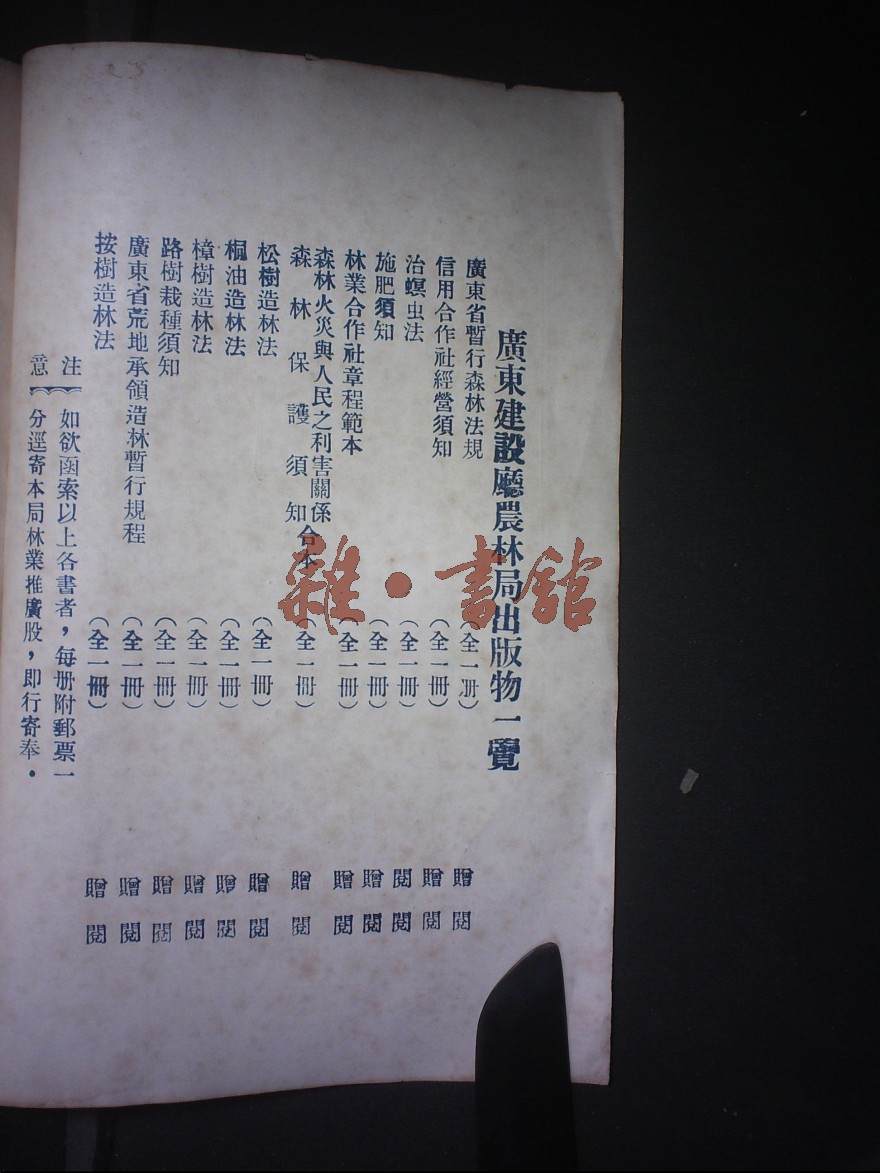 廣東建設廳農林局出版物一覽
廣東省暫行森林法規（全一册）贈閱
信用合作社經營須知（全一冊）贈閱
治螟虫法（全一冊）閱閱
施肥須知（全一冊）贈閱
林業合作社章程範本（全一冊）贈閱
森林火災與人民之利害關係
森林保護須知
合本（全一冊）贈閱
松樹造林法（全一冊）贈閱
桐油造林法（全一冊）贈閱
樟樹造林法（全一冊）贈閱
路樹栽種須知（全一冊）贈閱
廣東省荒地承領造林暫行規程（全一冊）贈閱
按樹造林法（全一冊）贈閱
注意
如欲函索以上各書者，每册附郵票一
分逕寄本局林業推廣股，即行寄奉．
雜·書館